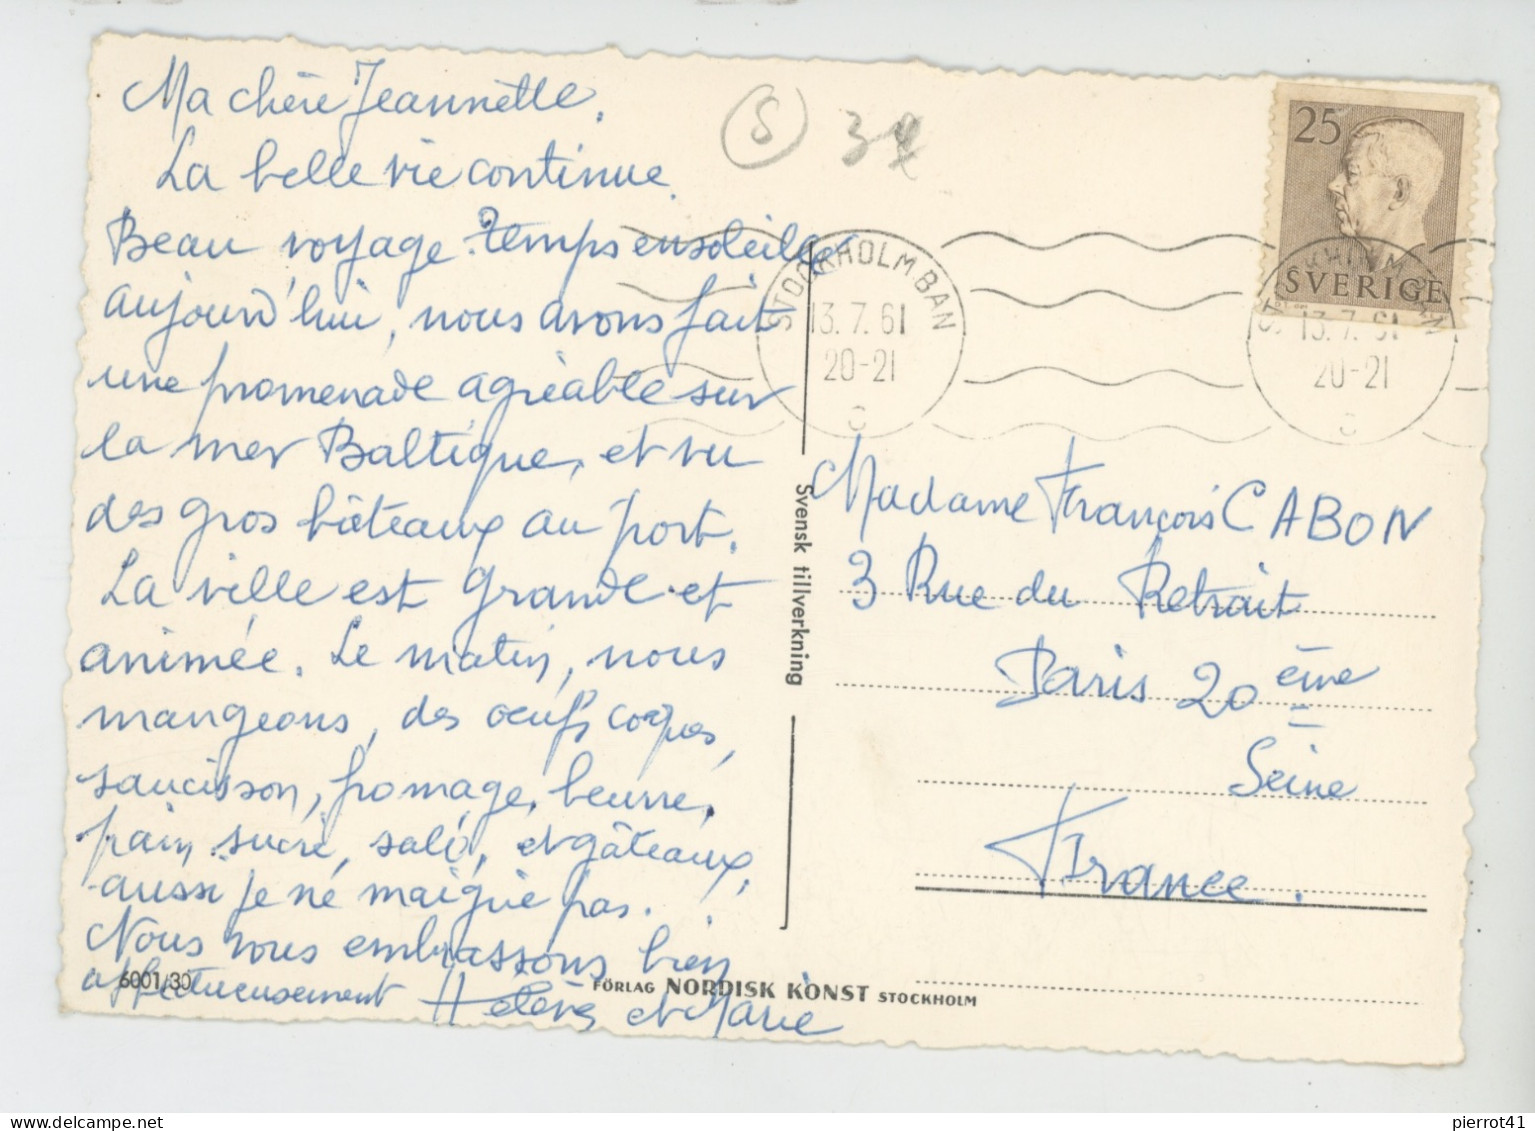 Ma chère Jeannette,
La belle vie continue.
Beau voyage. temps ensoleillé
aujourd'hui, nous avons fait
une promenade agréable sur
la mer Baltique, et vu
des gros bâteaux au port.
La ville est grande et
animée. Le matin, nous
mangeons, des oeufs coques,
saucisson, fromage, beurre,
pain sucré, salé, et gâteaux,
aussi je ne maigrie pas.
Nous vous embrassons bien
affectueusement Hélène et Marie
6001/30
FÖRLAG NORDISK KONST STOCKHOLM
Svensk tillverkning
S
25
SVERIGE
STOCKHOLM BAN
13.7.61
20-21
STOCKHOLM BAN
13.7.61
20-21
Madame François CABON
3 Rue du Retrait
Paris 20 ème
Seine
France.
pierrot41